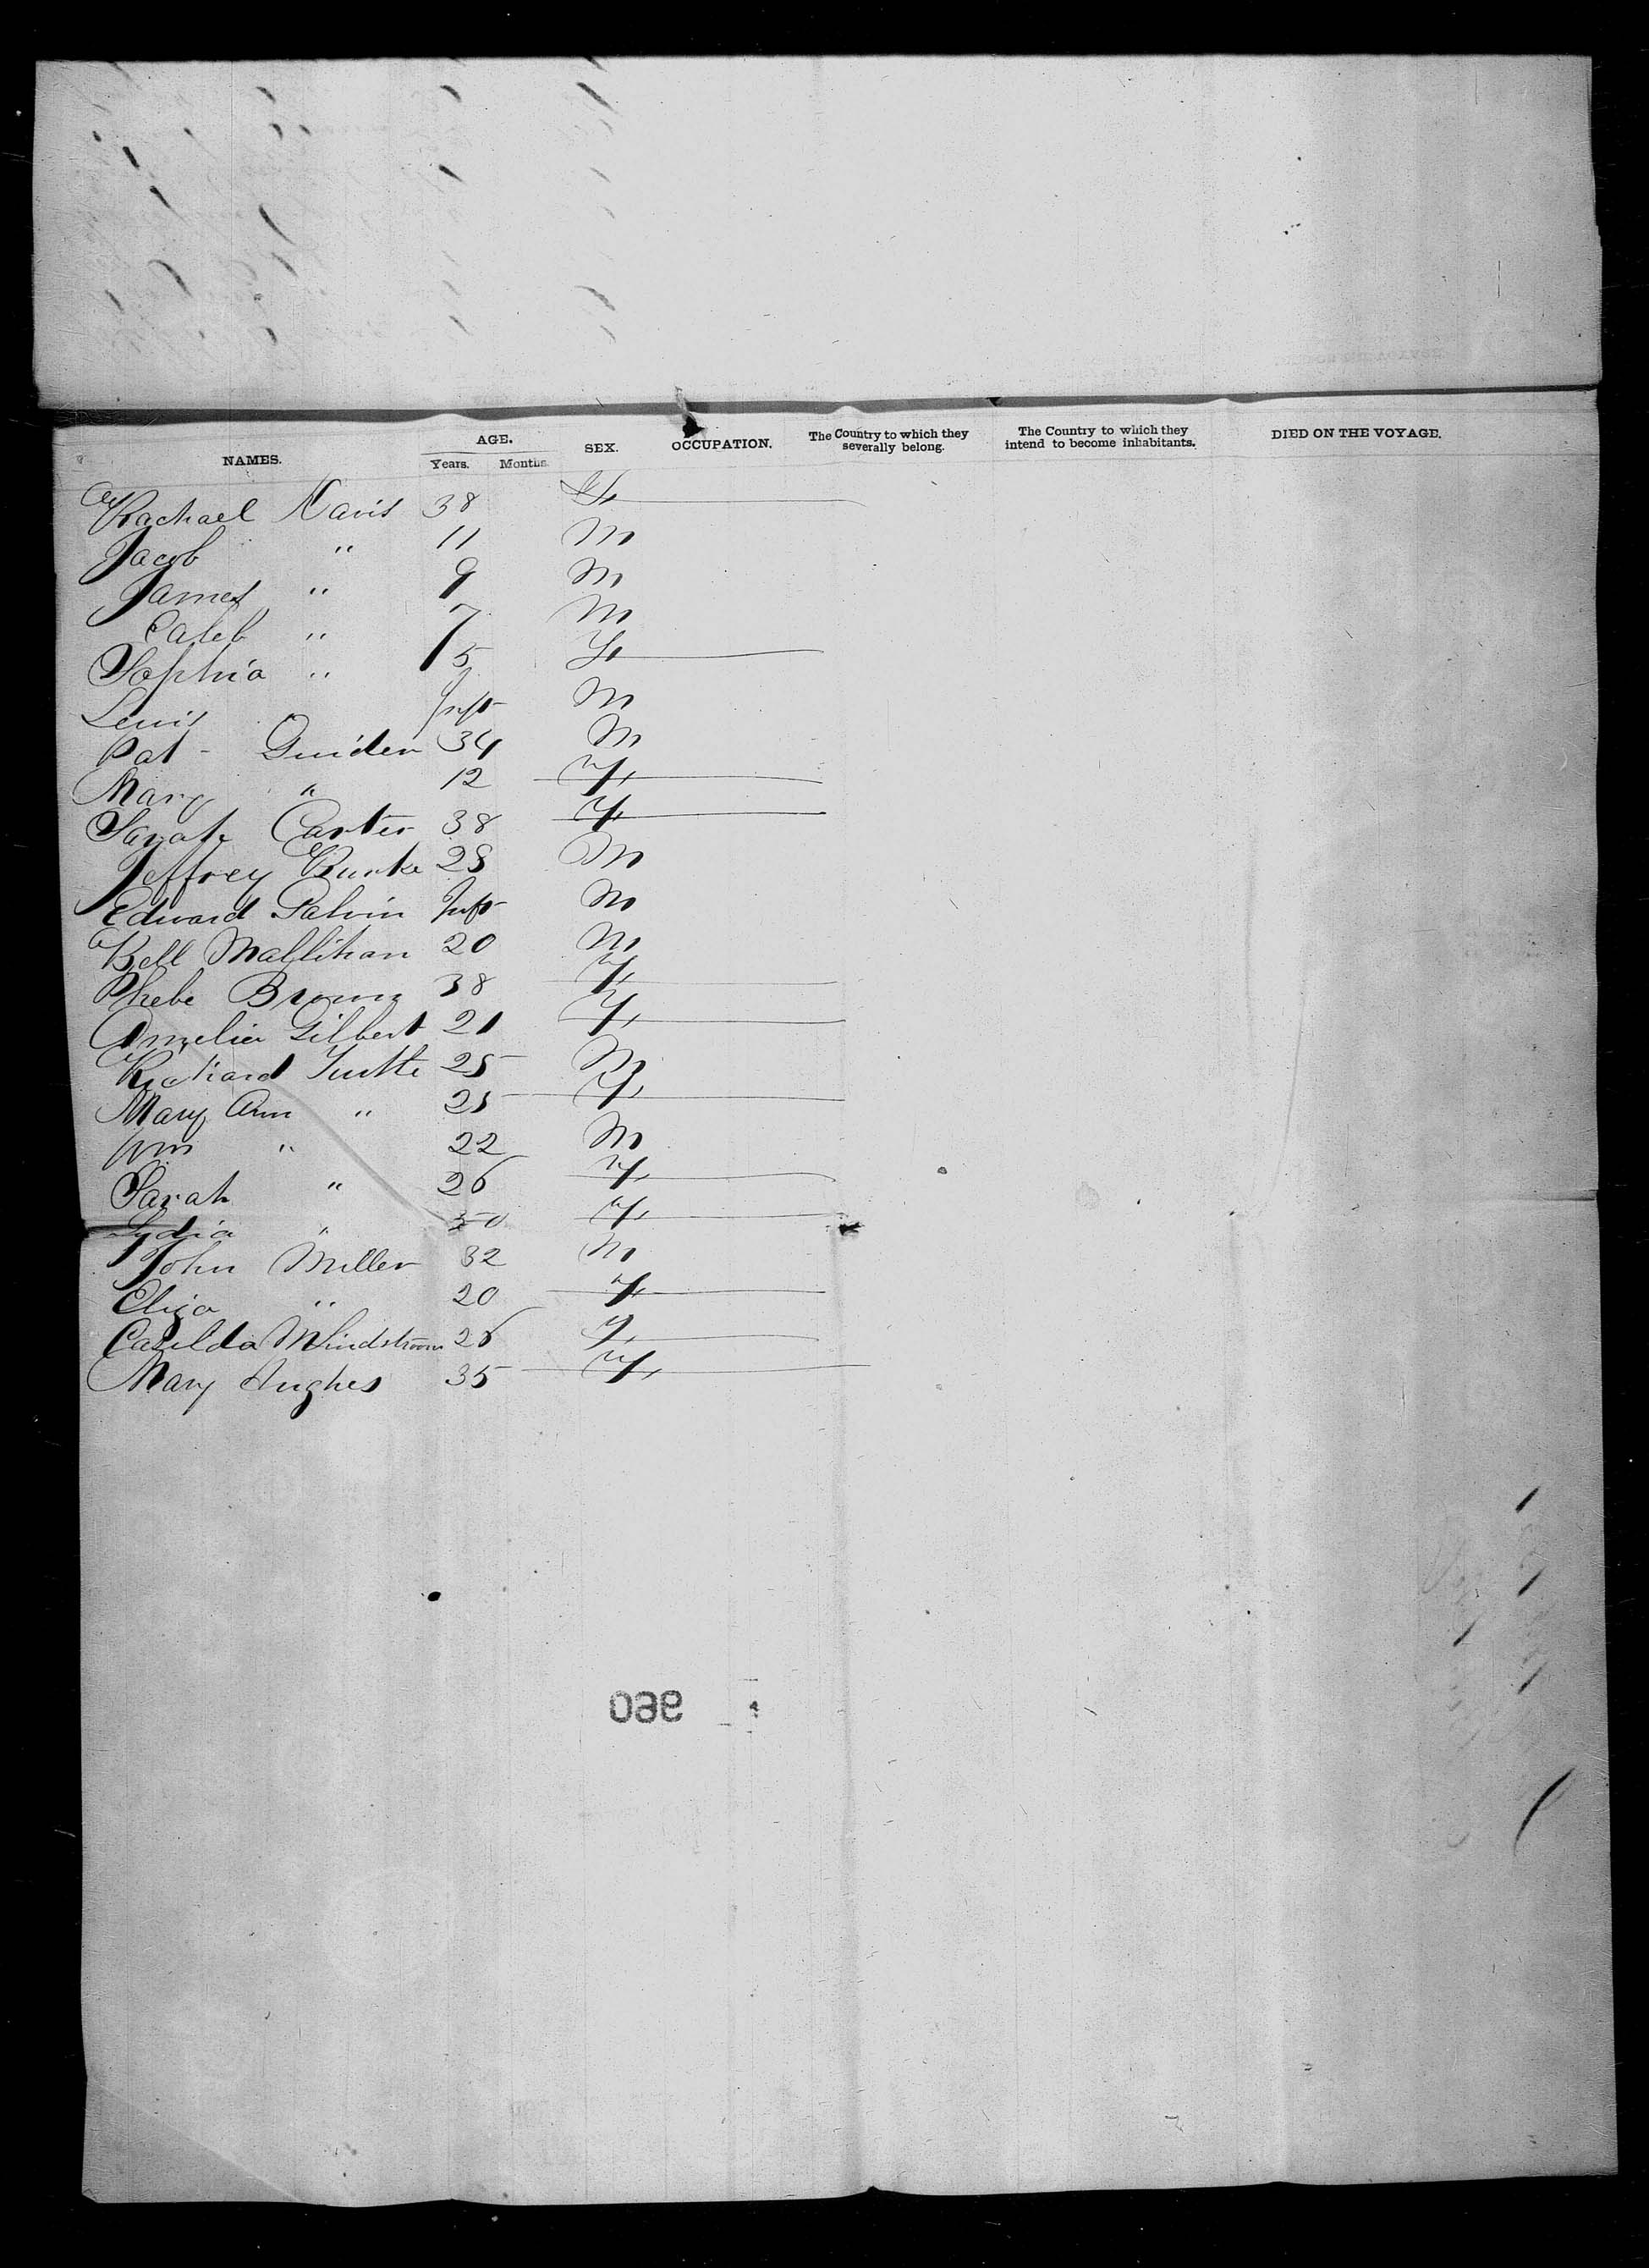 NAMES. AGE. Years. Months. SEX. OCCUPATION. The Country to which they severally belong. The Country to which they intend to become inhabitants. DIED ON THE VOYAGE.
Rachael Navis 38 F
Jacob " 11 M
James " 9 M
Caleb " 7 M
Sophia " 5 F
Lewis " Inft M
Pat - Guiden 34 M
Mary " 12 F
Sarah Carter 38 F
Jeffrey Burke 28 M
Edward Galvin Inft M
Bell Mallihan 20 M
Phebe Brown 38 F
Amelia Gilbert 21 F
Richard Tutte 25 M
Mary Ann " 25 F
Wm " 22 M
Sarah " 26 F
Lydia " 50 F
John Miller 32 M
Eliza " 20 F
Casilda M Lindstroom 26 F
Mary Hughes 35 F